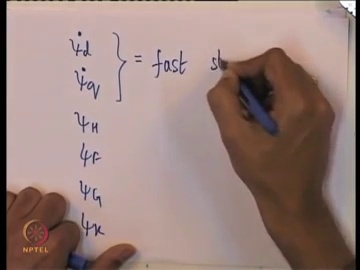 ψ̇d } = fast s
ψ̇q
ψH
ψF
ψG
ψK
NPTEL